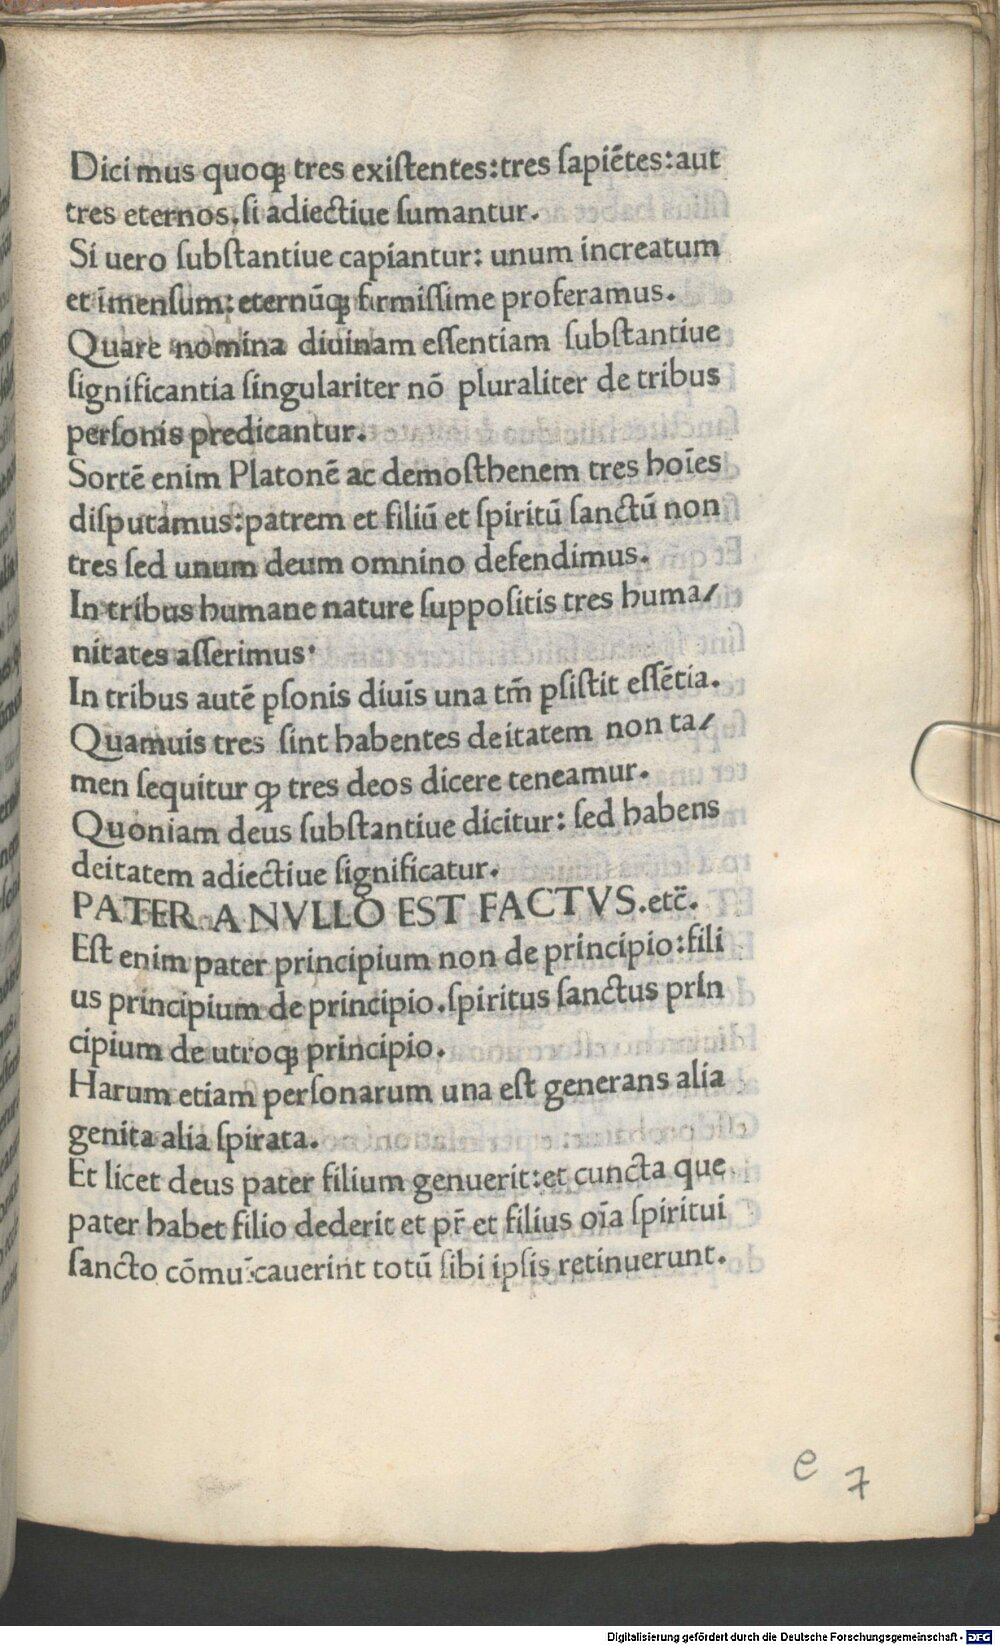 Dici mus quoqꝫ tres exiſtentes:tres ſapiētes:aut
tres eternos.ſi adiectiue ſumantur.
Si uero ſubſtantiue capiantur: unum increatum
et īmenſum: eternūqꝫ firmiſſime proferamus.
Quare nomina diuinam eſſentiam ſubſtantiue
ſignificantia ſingulariter nō pluraliter de tribus
perſonis predicantur.
Sortē enim Platonē ac demoſthenem tres hoīes
diſputamus:patrem et filiū et ſpiritū ſanctū non
tres ſed unum deum omnino defendimus.
In tribus humane nature ſuppoſitis tres huma/
nitates aſſerimus.
In tribus autē ꝑſonis diuīs una tm̄ ꝑſiſtit eſſētia.
Quamuis tres ſint habentes deitatem non ta/
men ſequitur ꝙ tres deos dicere teneamur.
Quoniam deus ſubſtantiue dicitur: ſed habens
deitatem adiectiue ſignificatur.
PATER A NVLLO EST FACTVS.etc̄.
Eſt enim pater principium non de principio:fili
us principium de principio.ſpiritus ſanctus prin
cipium de utroqꝫ principio.
Harum etiam perſonarum una eſt generans alia
genita alia ſpirata.
Et licet deus pater filium genuerit:et cuncta que
pater habet filio dederit et pr̄ et filius oīa ſpiritui
ſancto cōmūicauerint totū ſibi ipſis retinuerunt.
e 7
Digitalisierung gefördert durch die Deutsche Forschungsgemeinschaft - DFG